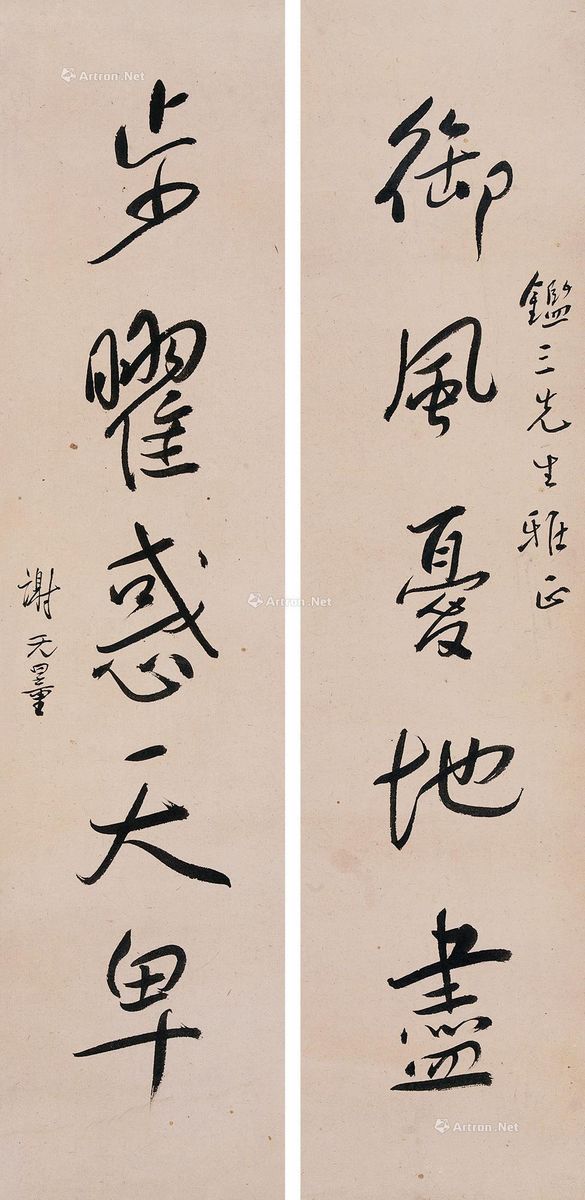 御風憂地盡
鑑三先生雅正
步曜惑天卑
謝无量
Artron.Net
Artron.Net
Artron.Net